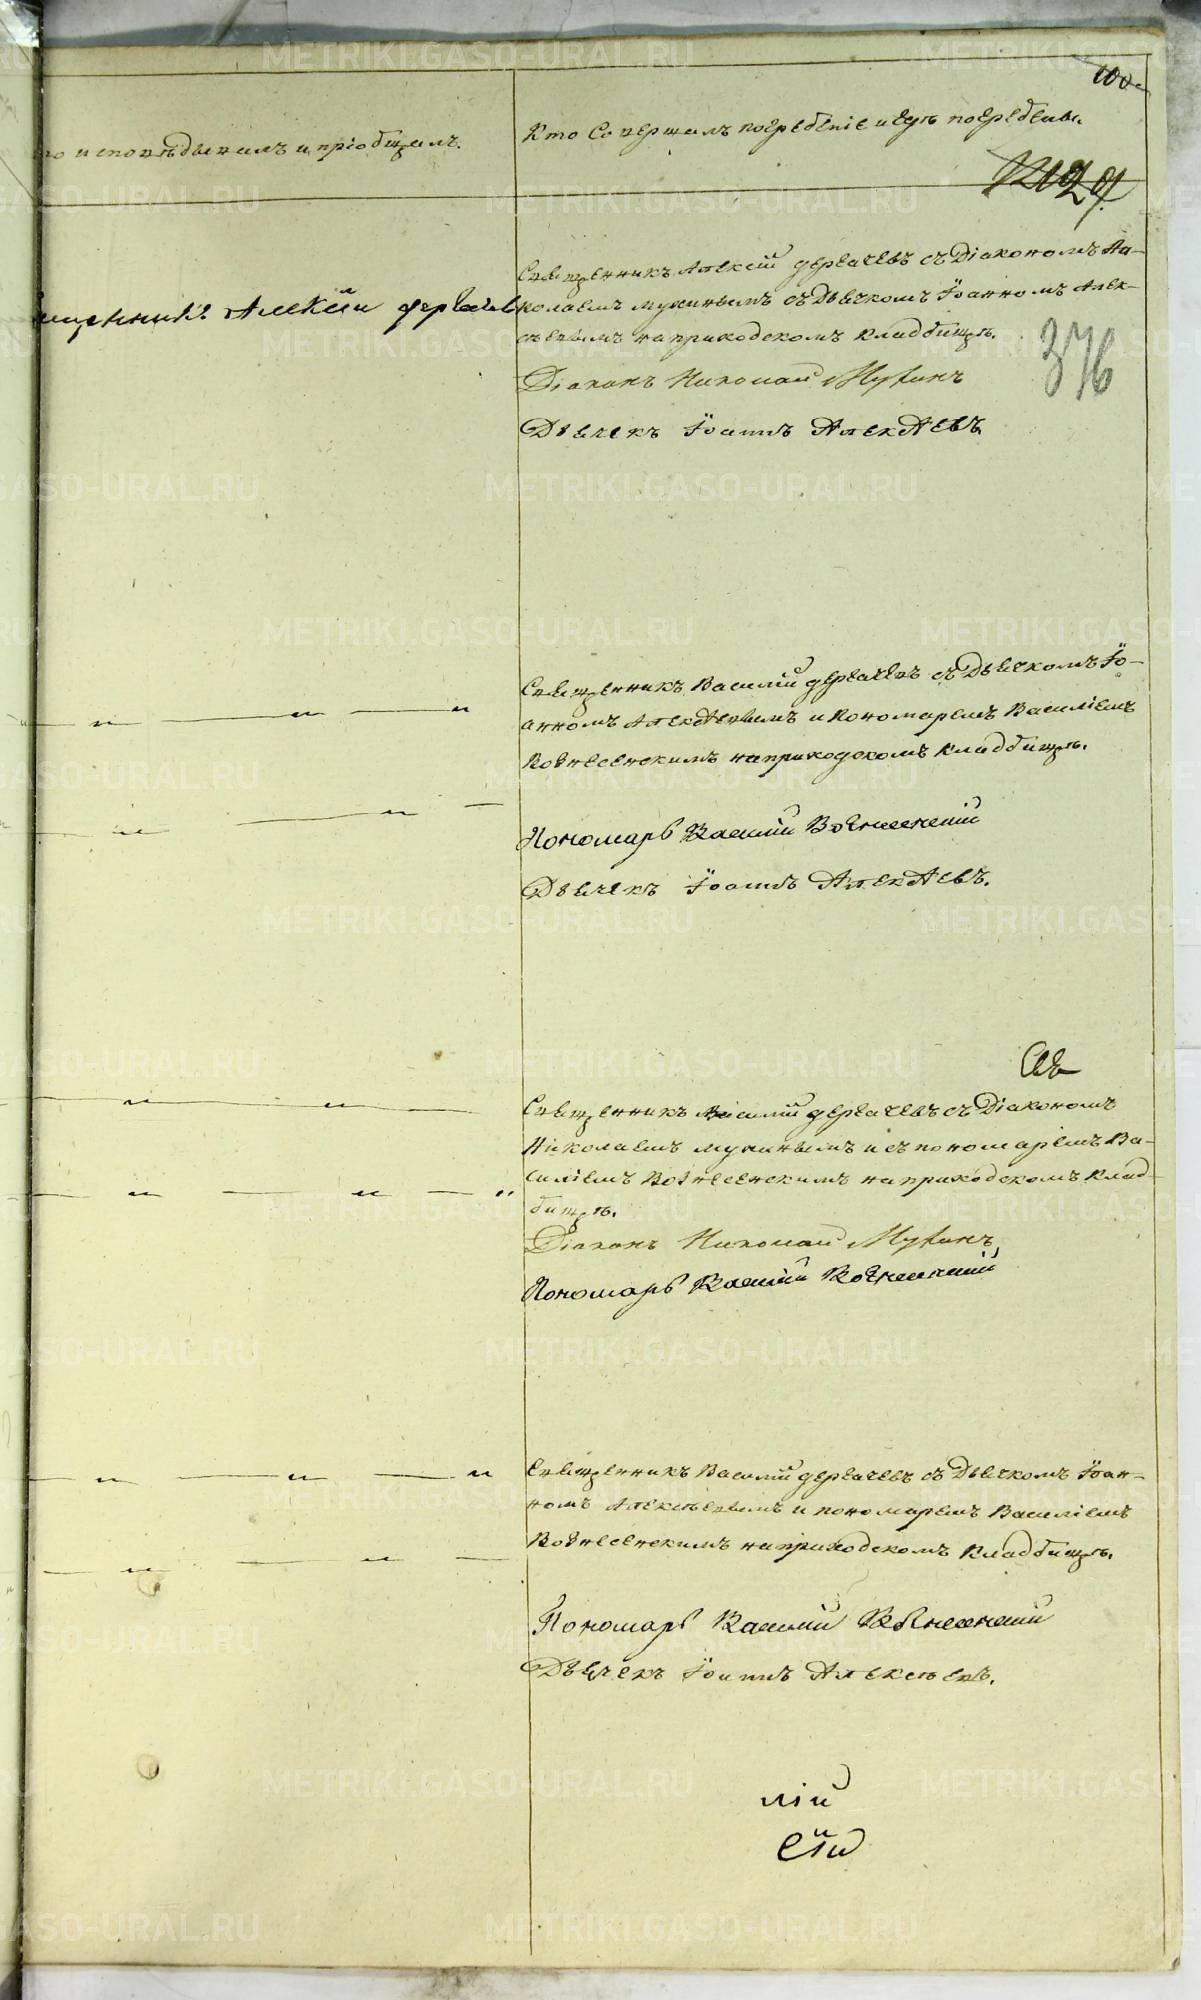 100
то исповѣдывалъ и пріобщалъ.
Кто Совершалъ погребеніе и гдѣ погребены.
376
Священникъ Алексій Дергачевъ съ Діакономъ Ни-
колаемъ Мухинымъ съ Дьячкомъ Іоанномъ Алек-
сѣевымъ на приходскомъ кладбищѣ.
ященникъ Алексій Дергачевъ
Діаконъ Николай Мухинъ
Дьячекъ Іоаннъ Алексѣевъ
Священникъ Василій Дергачевъ съ Дьячкомъ Іо-
анномъ Алексѣевымъ и Пономаремъ Василіемъ
Вознесенскимъ на приходскомъ кладбищѣ.
Пономарь Василій Вознесенскій
Дьячекъ Іоаннъ Алексѣевъ.
Священникъ Василій Дергачевъ съ Діакономъ
Николаемъ Мухинымъ и съ пономаремъ Ва-
силіемъ Вознесенскимъ на приходскомъ клад-
бищѣ.
Діаконъ Николай Мухинъ
Пономарь Василій Вознесенскій
Священникъ Василій Дергачевъ съ Дьячкомъ Іоан-
номъ Алексѣевымъ и пономаремъ Василіемъ
Вознесенскимъ на приходскомъ кладбищѣ.
Пономарь Василій Вознесенскій
Дьячекъ Іоаннъ Алексѣевъ.
лій
сій
METRIKI.GASO-URAL.RU